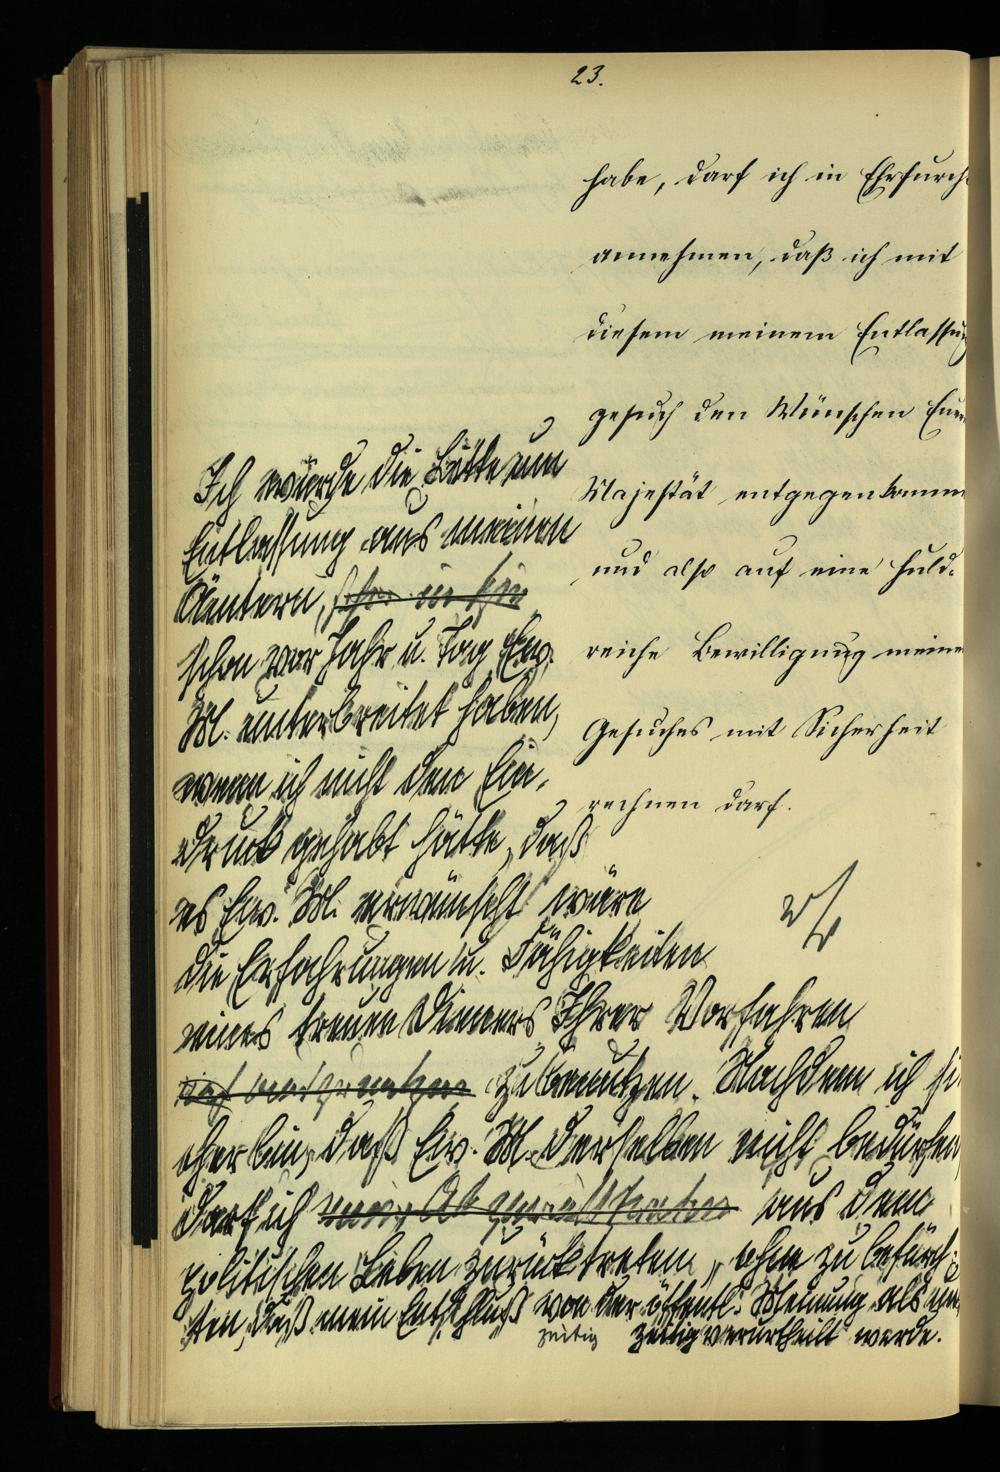 23.
habe, darf ich in Ehrfurch
annehmen, daß ich mit
diesem meinem Entlassun
gesuch den Wünschen Eure
Majestät entgegenkomm
und also auf eine huld-
reiche Bewilligung meine
Gesuches mit Sicherheit
rechnen darf.
Ich würde die Bitte um
Entlassung aus meinen
Ämtern,
schon vor Jahr u. Tag Ew.
M. unterbreitet haben,
wenn ich nicht den Ein-
druck gehabt hätte, daß
es Ew. M. erwünscht wäre
die Erfahrungen u. Fähigkeiten
eines treuen Dieners Ihrer Vorfahren
zu benutzen. Nachdem ich si
cher bin, daß Ew. M. derselben nicht bedürfen
darf ich aus dem
politischen Leben zurücktreten, ohne zu befürch-
ten, daß mein Entschluß von der öffentl. Meinung als un
zeitig zeitig verurtheilt werde.